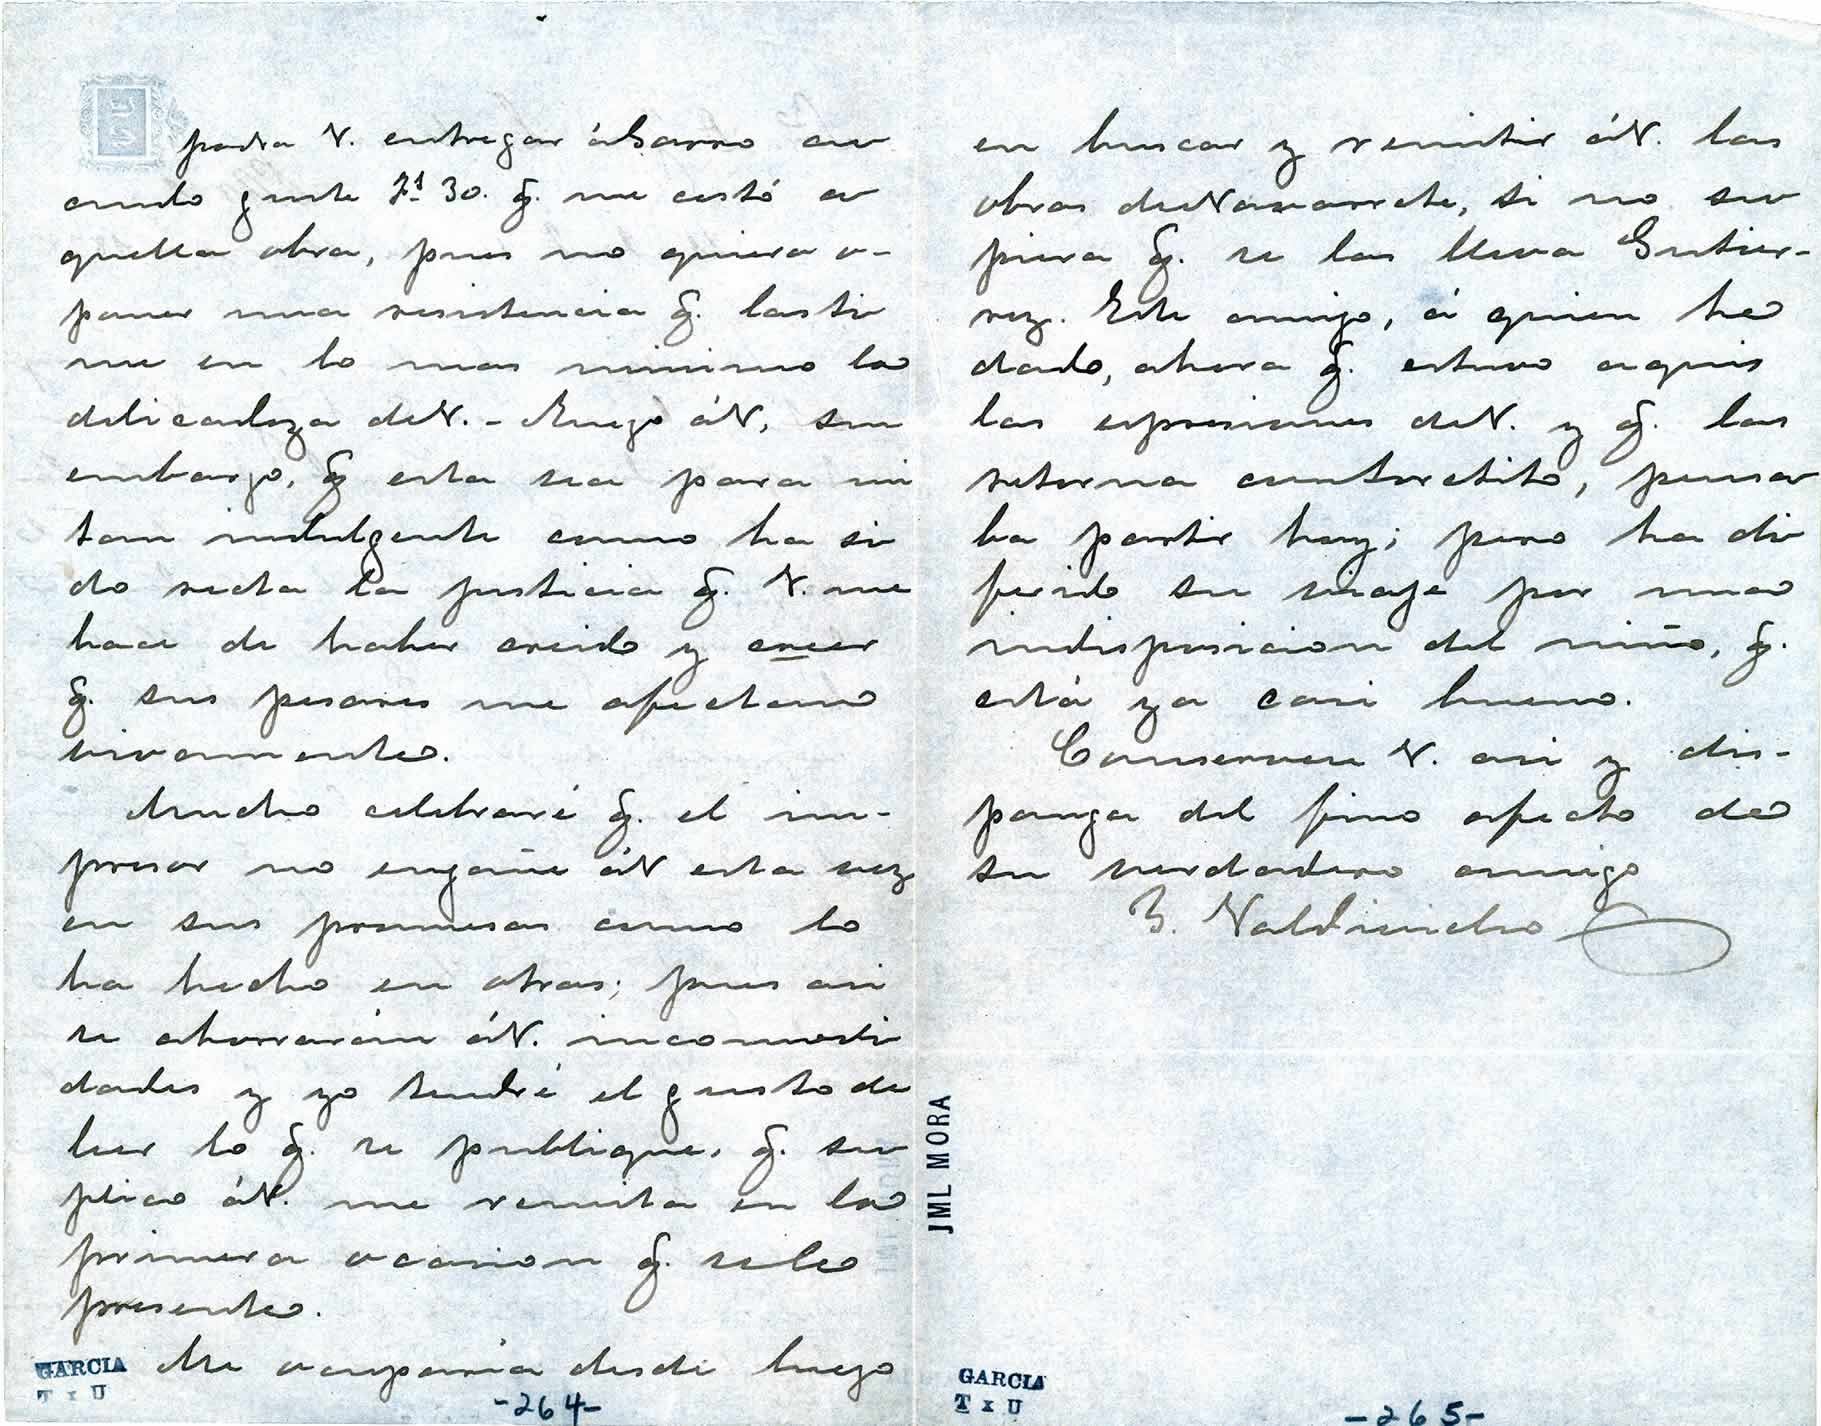 podra V. entregar á Barro cu
ando guste 2$ 30. q. me costó a
quella obra, pues no quiero o-
poner una resistencia q. lasti
me en lo mas minimo la
delicadeza de V. - Ruego á V, sin
embargo, q esta sea para mi
tan indulgente como ha si
do recta la justicia q. V. me
hace de haber creido y creer
q. sus pesares me afectan
vivamente.
Mucho celebraré q. el im-
presor no engañe á V esta vez
en sus promesas como lo
ha hecho en otras; pues asi
se ahorrarán á V. incomodi
dades y yo tendré el gusto de
leer lo q. se publique, q. su
plico á V. me remita en la
primera ocasion q. se le
presente.
Me ocuparia desde luego
GARCIA
T x U
-264-
JML MORA
en buscar y remitir á V. las
obras de Navarrete, si no su
piera q. se las lleva Gutier-
rez. Este amigo, á quien he
dado, ahora q. estuvo aquí
las espresiones de V. y q. las
retorna, pensa
ba partir hoy; pero ha di
ferido su viaje por una
indisposicion del niño, q.
está ya casi bueno.
Conservese V. asi y dis-
ponga del fino afecto de
su verdadero amigo
GARCIA
T x U
-265-